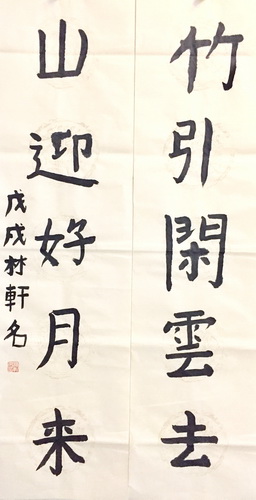 竹引閑雲去
山迎好月来
戊戌村軒名